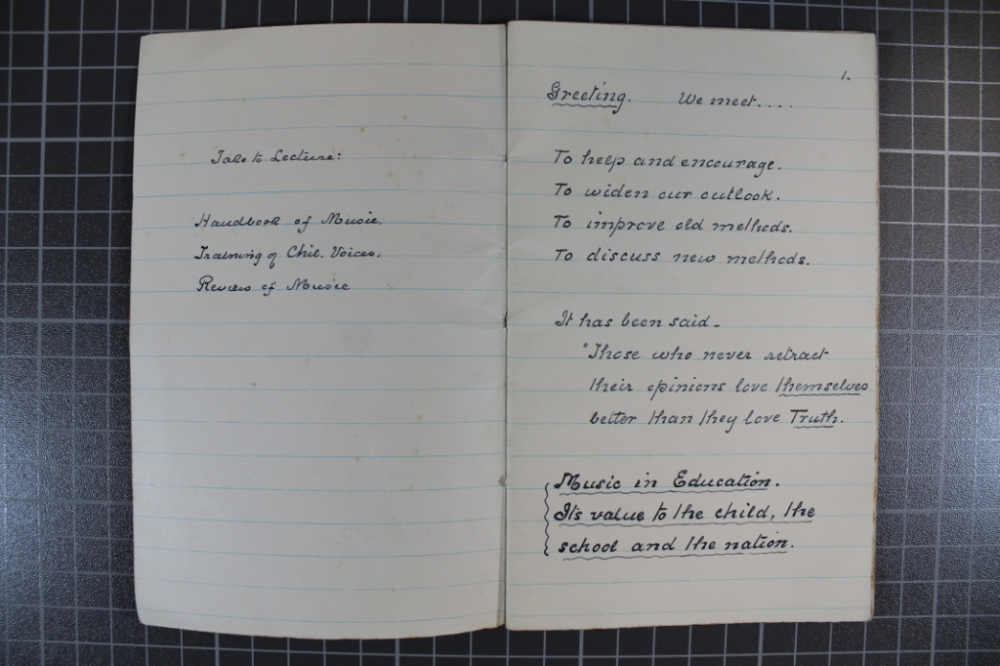 Take to Lecture:
Handbook of Music.
Training of Chil. Voices.
Review of Music
1.
Greeting. We meet....
To help and encourage.
To widen our outlook.
To improve old methods.
To discuss new methods.
It has been said -
"Those who never retract
their opinions love themselves
better than they love Truth.
Music in Education.
It's value to the child, the
school and the nation.